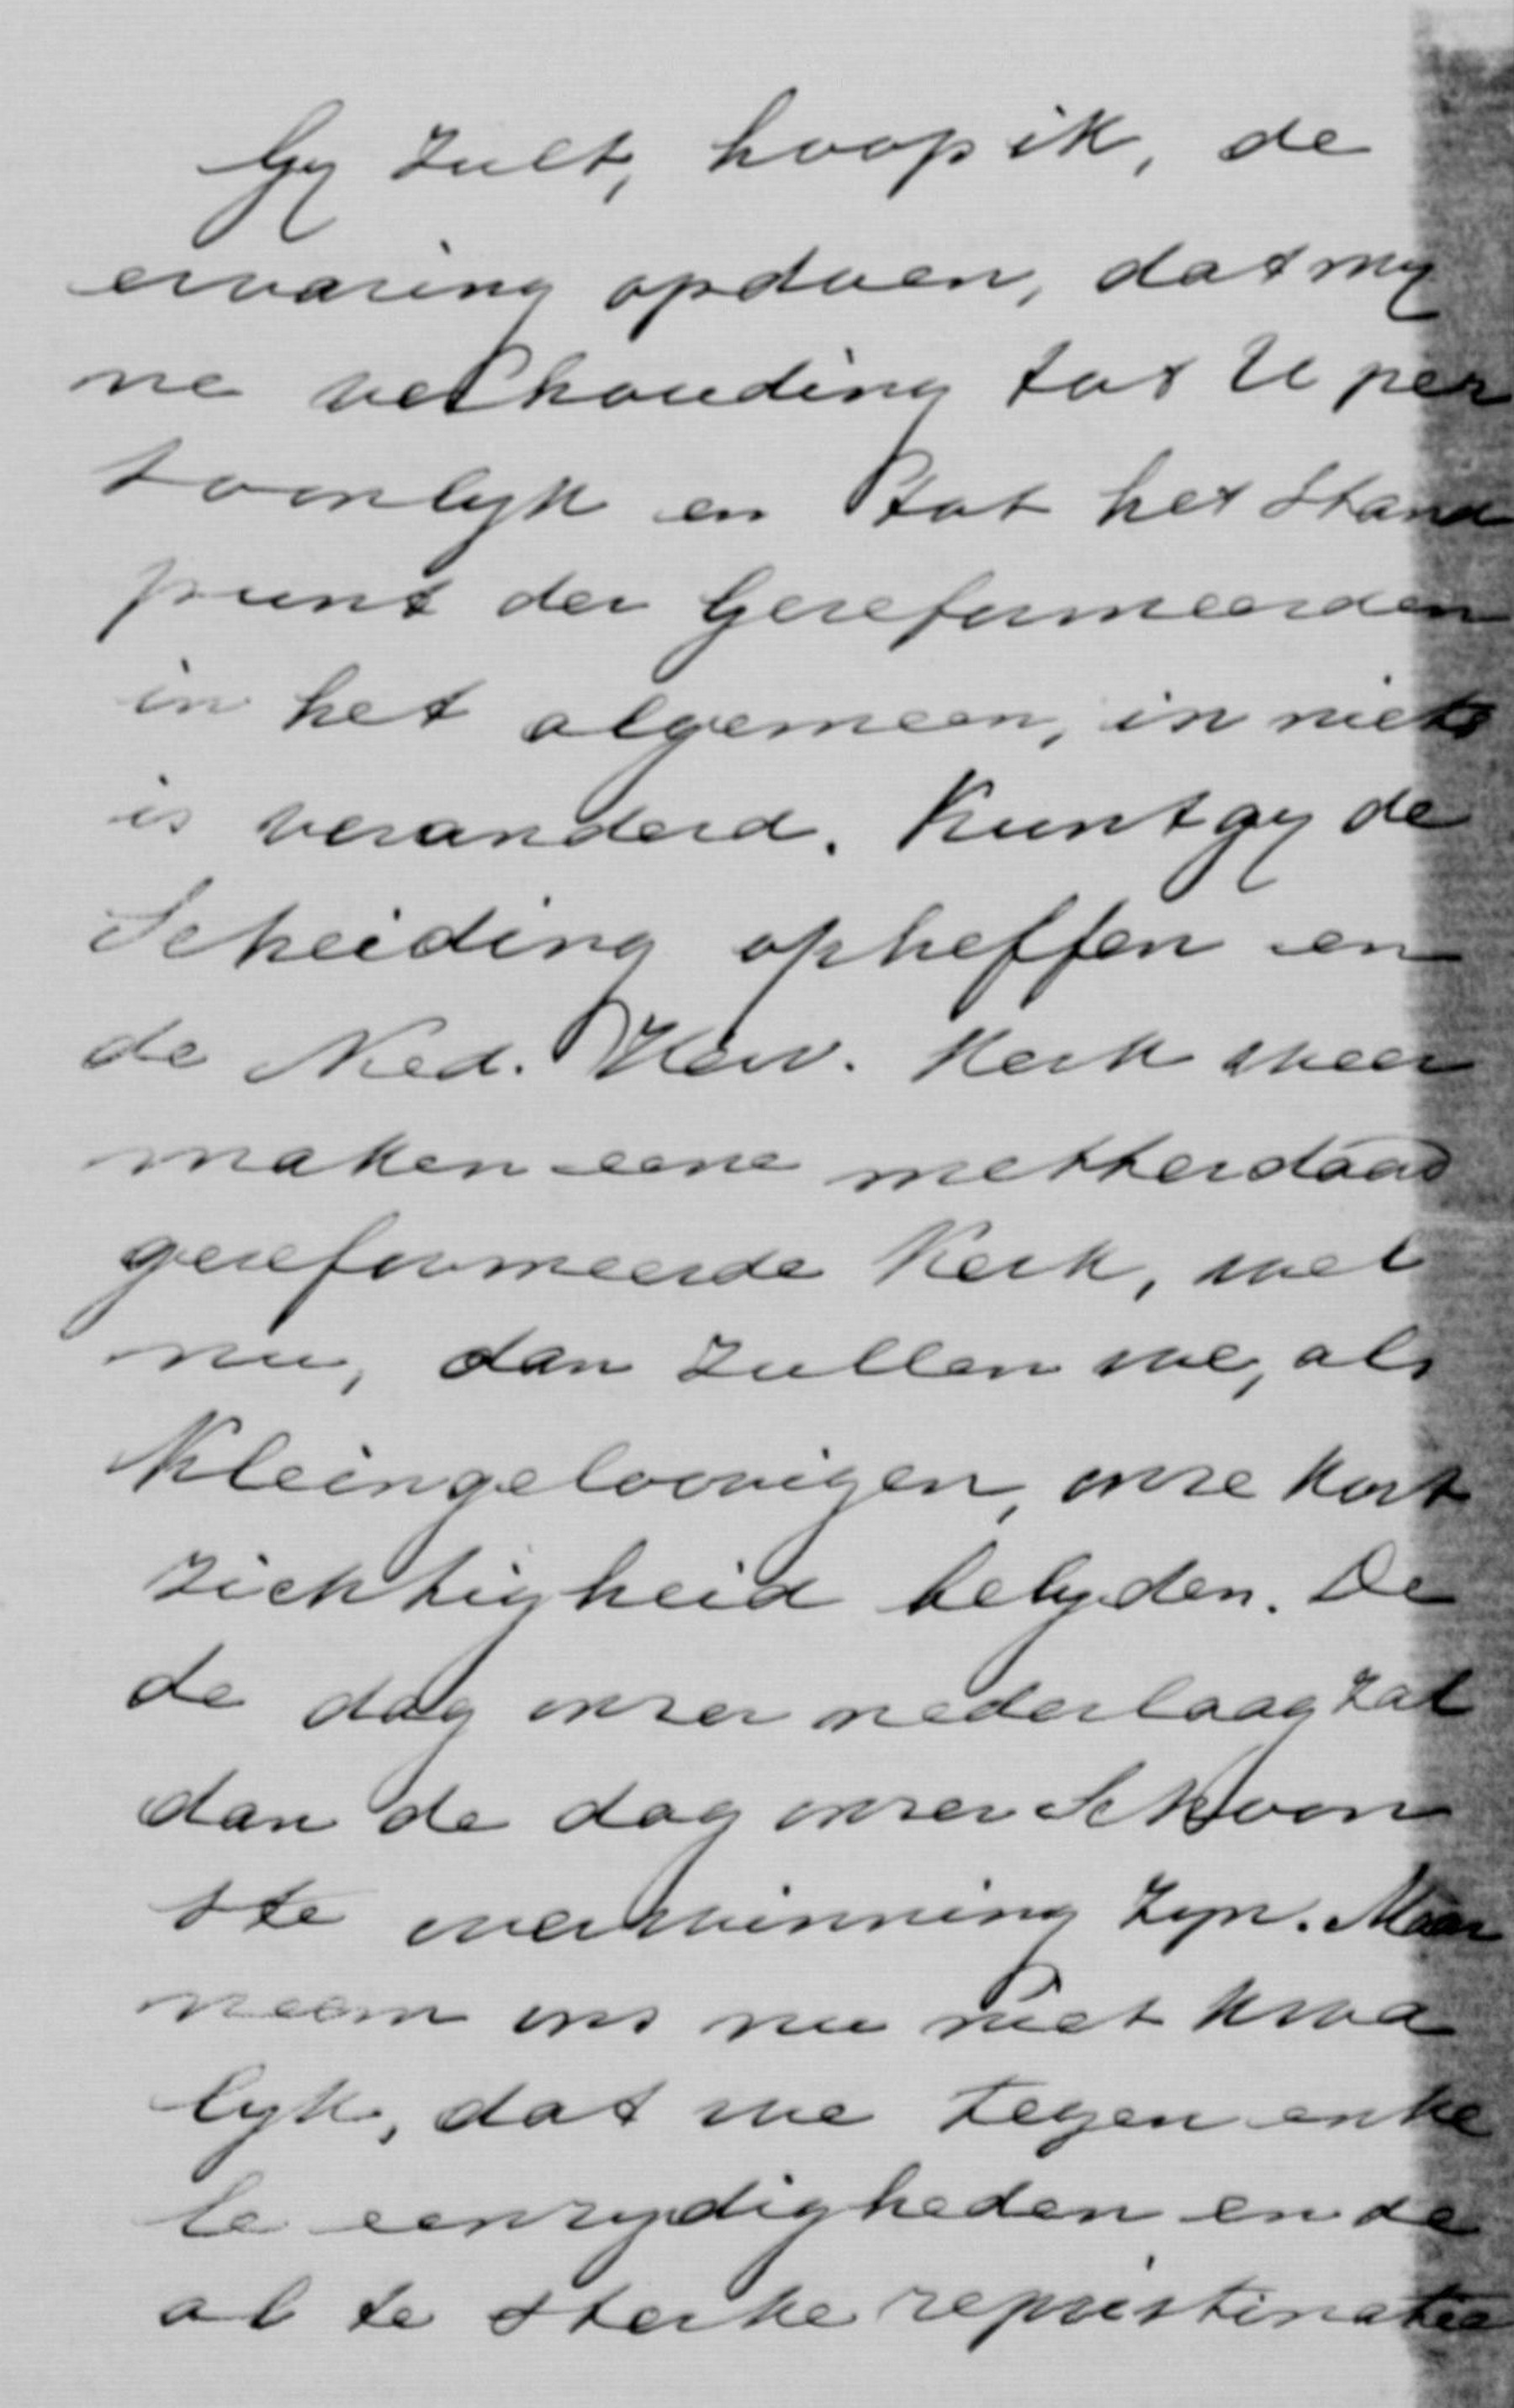 Gy zult, hoop ik, de
ervaring opdoen, dat my
ne verhouding tot U per
soonlyk en tot het stand
punt der Gereformeerden
in het algemeen, in niets
is veranderd. Kunt gy de
Scheiding opheffen en
de Ned. Herv. Kerk weer
maken eene metterdaad
gereformeerde Kerk, wel
nu, dan zullen we, als
Kleingeloovigen, onze kort
zichtigheid belyden. De
de dag onzer nederlaag zal
dan de dag onzer Schoon
ste overwinning zyn. Maar
neem ons nu niet kwa
lyk, dat we tegen enke
le eenzydigheden en de
al te sterke repristinatie